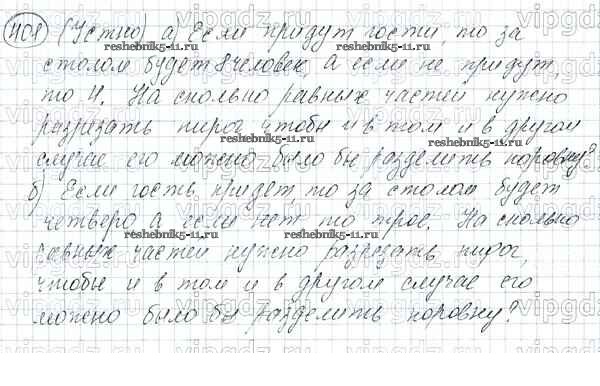 408 (Устно) а) Если придут гости, то за
reshebnik5-11.ru
столом будет 8 человек, а если не придут,
то 4. На сколько равных частей нужно
разрезать пирог чтобы и в том и в другом
reshebnik5-11.ru
случае его можно было бы разделить поровну?
б) Если гость придет, то за столом будет
четверо а если нет то трое. На сколько
reshebnik5-11.ru
равных частей нужно разрезать пирог,
чтобы и в том и в другом случае его
можно было бы разделить поровну?